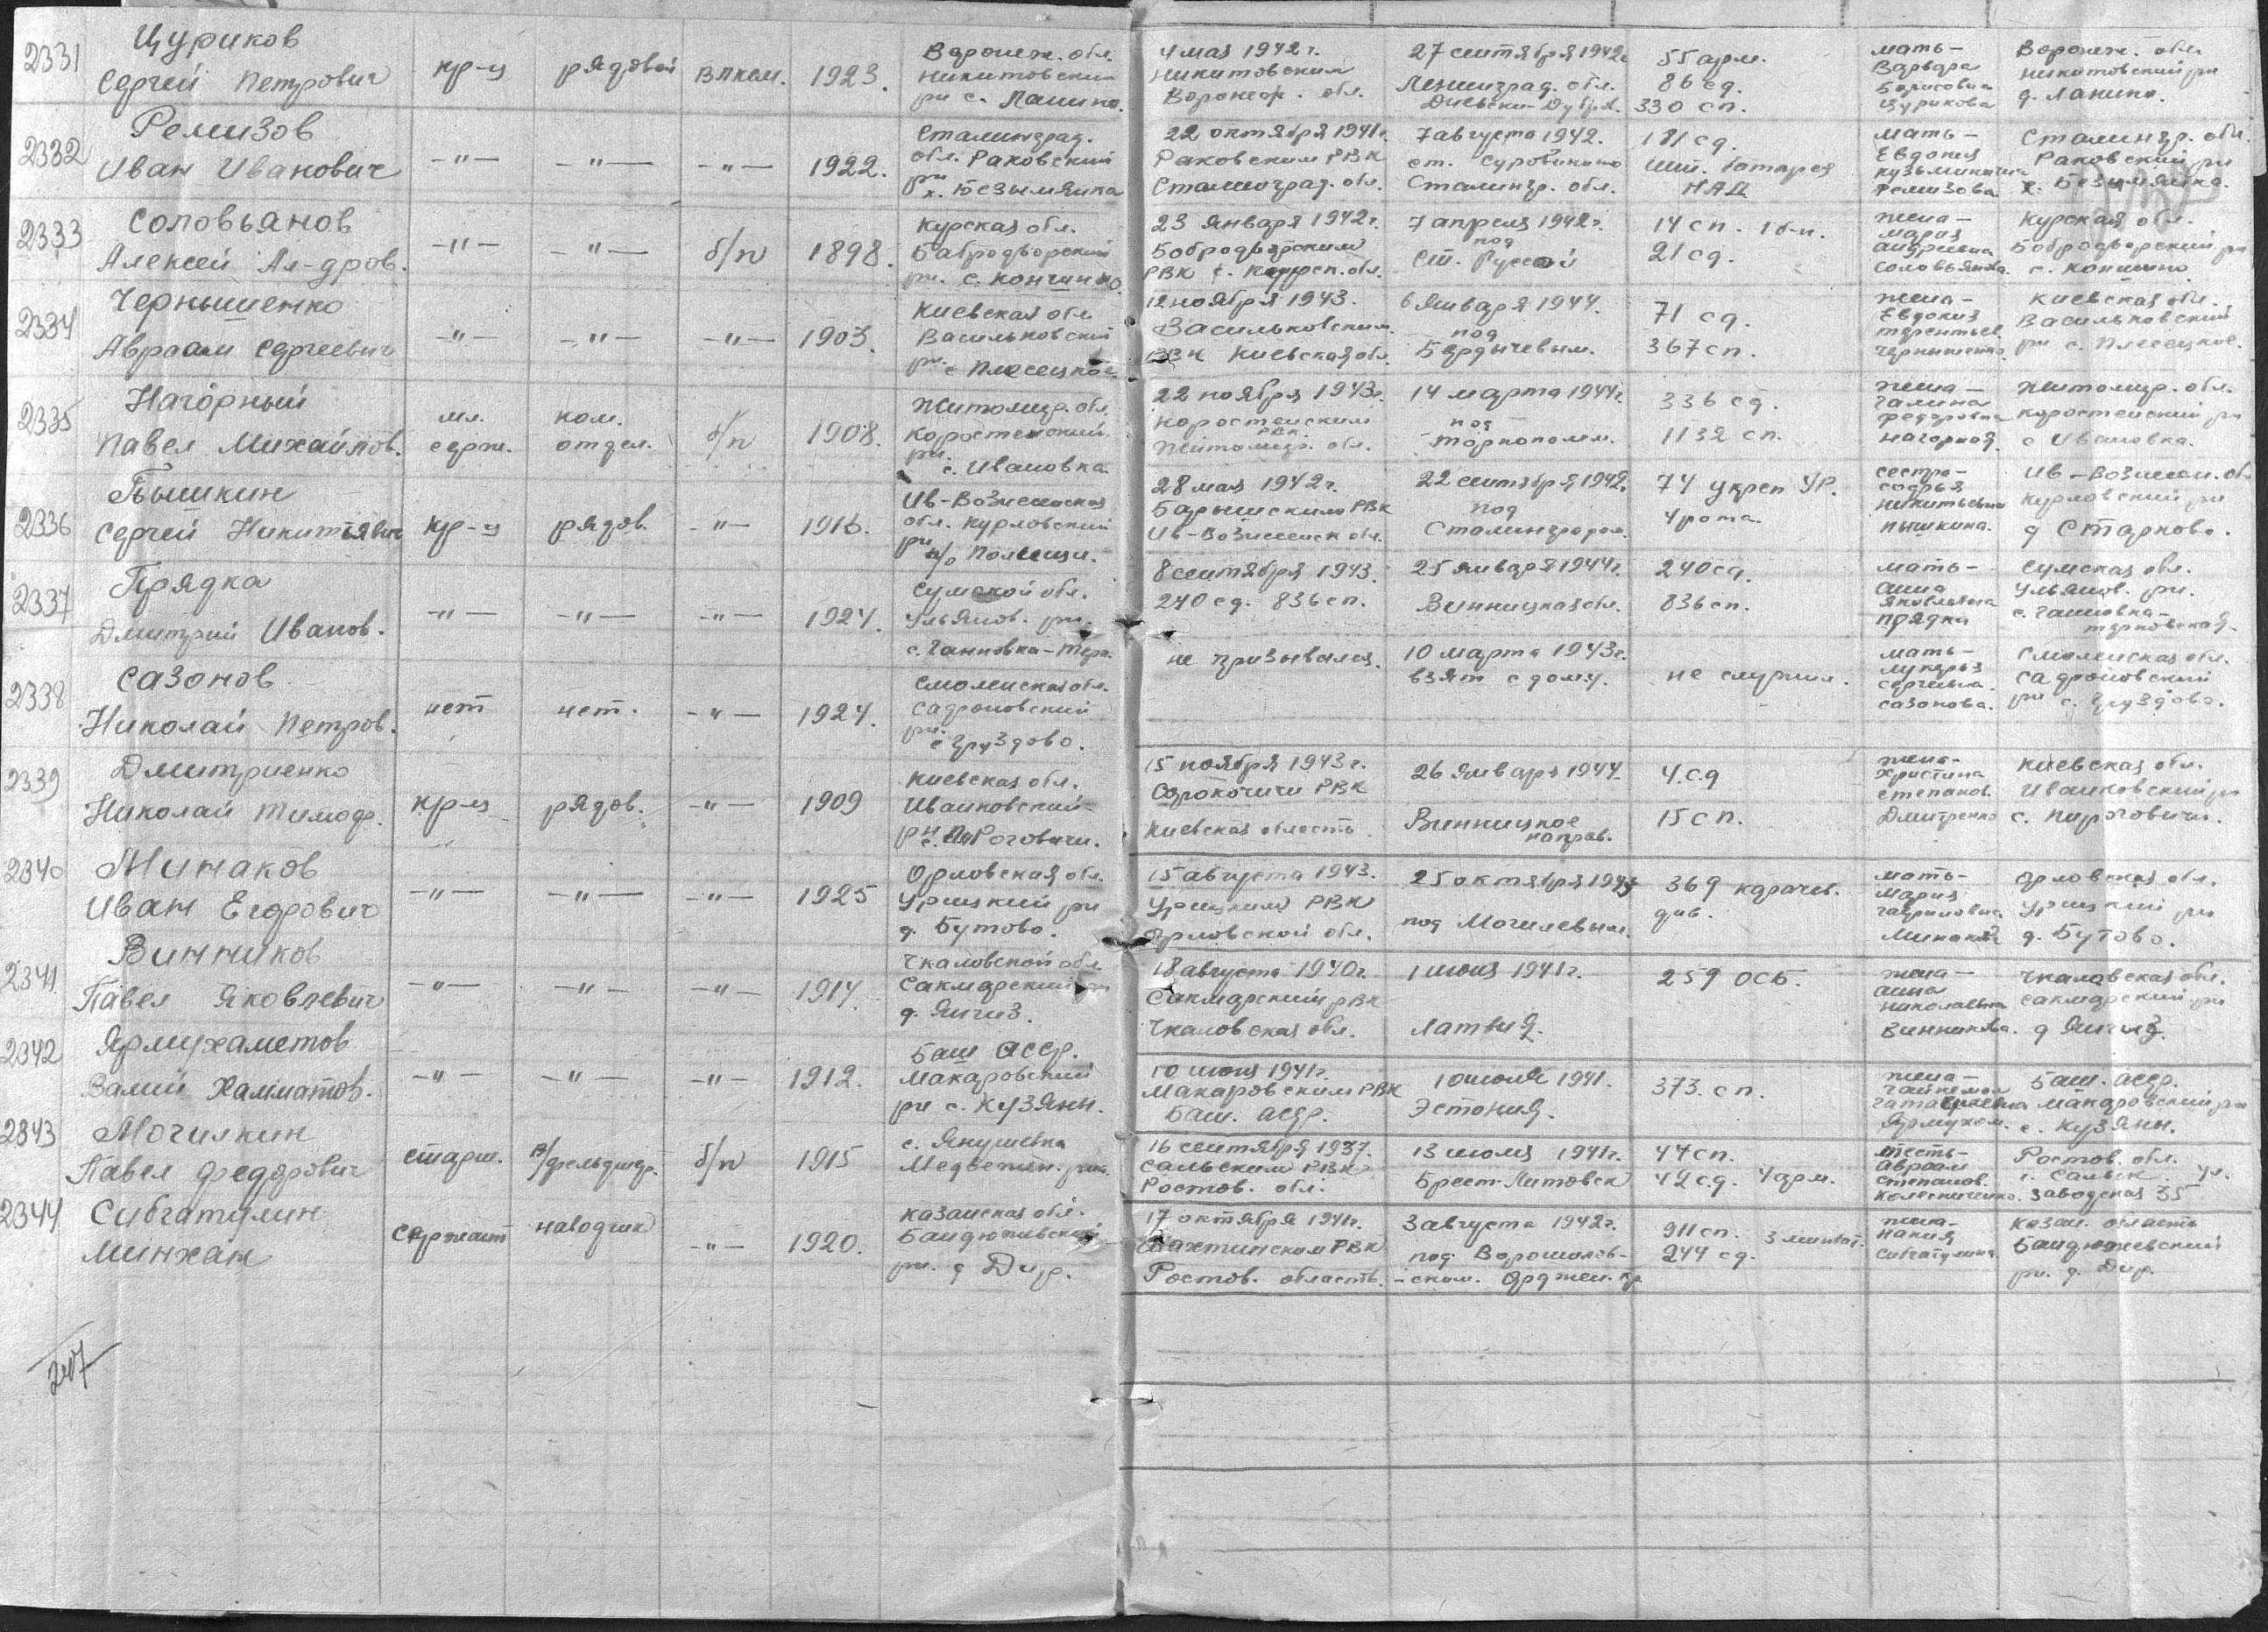 2331
Цуриков
Сергей Петрович
кр-ц
рядовой
ВЛКСМ.
1923.
Воронеж. обл.
Никитовский
рн с. Ланино.
4 мая 1942 г.
Никитовским
Воронеж. обл.
27 сентября 1942г
Ленинград. обл.
55 арм.
86 сд.
330 сп.
мать-
Варвара
Борисовна
Цурикова
Воронеж. обл.
Никитовский рн
д. Ланино.
2332
Ремизов
Иван Иванович
-"-
-"-
-"-
1922.
Сталинград.
обл. Раковский
рн
х. Безымянка
22 октября 1941г.
Раковским РВК
Сталинград. обл.
7 августа 1942.
ст. Суровикино
Сталингр. обл.
181 сд.
мать-
Евдокия
Кузьминична
Ремизова
Сталингр. обл.
Раковский рн
х. Безымянка.
2333
Соловьянов
Алексей Ал-дров.
-"-
-"-
б/п
1898.
Курская обл.
Бабродворский
рн. с. Кончинко
23 января 1942г.
Бобродворским
РВК Курск. обл.
7 апреля 1942г.
под
Ст. Руссой
14 сп. 1 б-н.
21 сд.
жена-
Мария
Андреевна
Курская обл.
Бобродворский рн
2334
Чернышенко
Авраам Сергеевич
-"-
-"-
-"-
1903.
Киевская обл
Васильковский
рн.
с Плесецкое
12 ноября 1943.
Васильковским
РВК Киевская обл
6 января 1944.
под
Бердичевым.
71 сд.
367 сп.
жена-
Евдокия
Терентьев
Чернышенко.
Киевская обл.
Васильковский
рн с. Плесецкое.
2335
Нагорный
Павел Михайлов.
мл.
серж.
ком.
отдел.
б/п
1908.
Житомир. обл.
Коростенский
рн.
с. Ивановка
22 ноября 1943г.
Коростенским
РВК
Житомир. обл.
14 марта 1944г.
под
Торнополем.
336 сд.
1132 сп.
жена-
Галина
Федоровна
Нагорная.
Житомир. обл.
Коростенский рн
с Ивановка.
2336
Пышкин
Сергей Никитьевич
кр-ц
рядов.
-"-
1916.
Ив-Вознесенская
обл. Курловский
рн
28 мая 1942г.
Ив-Вознесенск обл.
22 сентября 1942.
под
Сталинградом.
74 укреп УР.
4 рота.
сестра-
Софья
Никитьевна
Пышкина.
Ив-Вознесен. обл
Курловский рн
д Старково.
2337
Прядка
Дмитрий Иванов.
-"-
-"-
-"-
1924.
Сумской обл.
Ульянов. рн.
с. Ганновка-Терн.
8 сентября 1943.
240 сд. 836 сп.
25 января 1944г.
Винницкая обл.
240 сд.
836 сп.
мать-
Анна
Яковлевна
Прядка
Сумская обл.
Ульянов. рн.
с. Ганновка-
терновская.
2338
Сазонов
Николай Петров.
нет
нет.
-"-
1924.
Смоленская обл.
Садроновский
рн.
с Груздово.
не призывался.
10 марта 1943г.
взят с дому.
не служил.
мать-
Лукерья
Сергеевна.
Сазонова.
Смоленская обл.
Садроновский
рн с. Груздово.
2339
Дмитриенко
Николай Тимоф.
кр-ц
рядов.
-"-
1909
Киевская обл.
Иванковский
рн
15 ноября 1943г.
Сорокошичи РВК
Киевская область
26 января 1944
Винницкое
направ.
4. сд
15 сп.
жена-
Христина
Степанов.
Дмитренко
Киевская обл.
Иванковский рн
с. Пироговичи.
2340
Минаков
Иван Егорович
-"-
-"-
-"-
1925
Орловская обл.
Урицкий рн
д. Бутово.
15 августа 1943.
Урицким РВК
Орловской обл.
25 октября 1943
под Могилевым.
369 карачев.
див.
мать-
Мария
Гавриловна
Минакова
Орловская обл.
Урицкий рн
д. Бутово.
2341
Винников
Павел Яковлевич
-"-
-"-
-"-
1914.
Чкаловской обл
Сакмарский рн
д. Янгиз.
18 августа 1940г.
Сакмарский РВК
Чкаловская обл.
1 июля 1941г.
Латвия.
259 ОСБ.
жена-
Анна
Николаевна
Винникова.
Чкаловская обл.
Сакмарский рн
д Янгиз.
2342
Ярмухаметов
Валий Халматов.
-"-
-"-
-"-
1912.
Баш АССР.
Макаровский
рн с. Кузянн.
10 июня 1941г.
Макаровским РВК
Баш. АССР.
10 июля 1941.
Эстония.
373. сп.
жена-
Ярмухам.
Баш. АССР.
Макаровский рн
с. Кузянн.
2343
Могилкин
Павел Федорович
старш.
в/фельдшер.
б/п
1915
с. Янушевка
Медвежен. рн.
16 сентября 1937.
Сальским РВК
Ростов. обл.
13 июля 1941г.
Брест-Литовск
44 сп.
42 сд. 4 арм.
тесть-
Авраам
Степанов.
Колесниченко.
Ростов. обл.
г. Сальск ул.
Заводская 35
2344
Сибгатулин
Минхан
сержант
наводчик
-"-
1920.
Казанская обл.
Байдюжевский
рн. д Дир.
17 октября 1941г.
Шахтинским РВК
Ростов. область.
3 августа 1942г.
под Ворошилов-
-ском. Орджен. кр
911 сп.
244 сд.
жена-
Накия
Сибгатулина
Казан. область
Байдюжевский
рн. д. Дир.
247